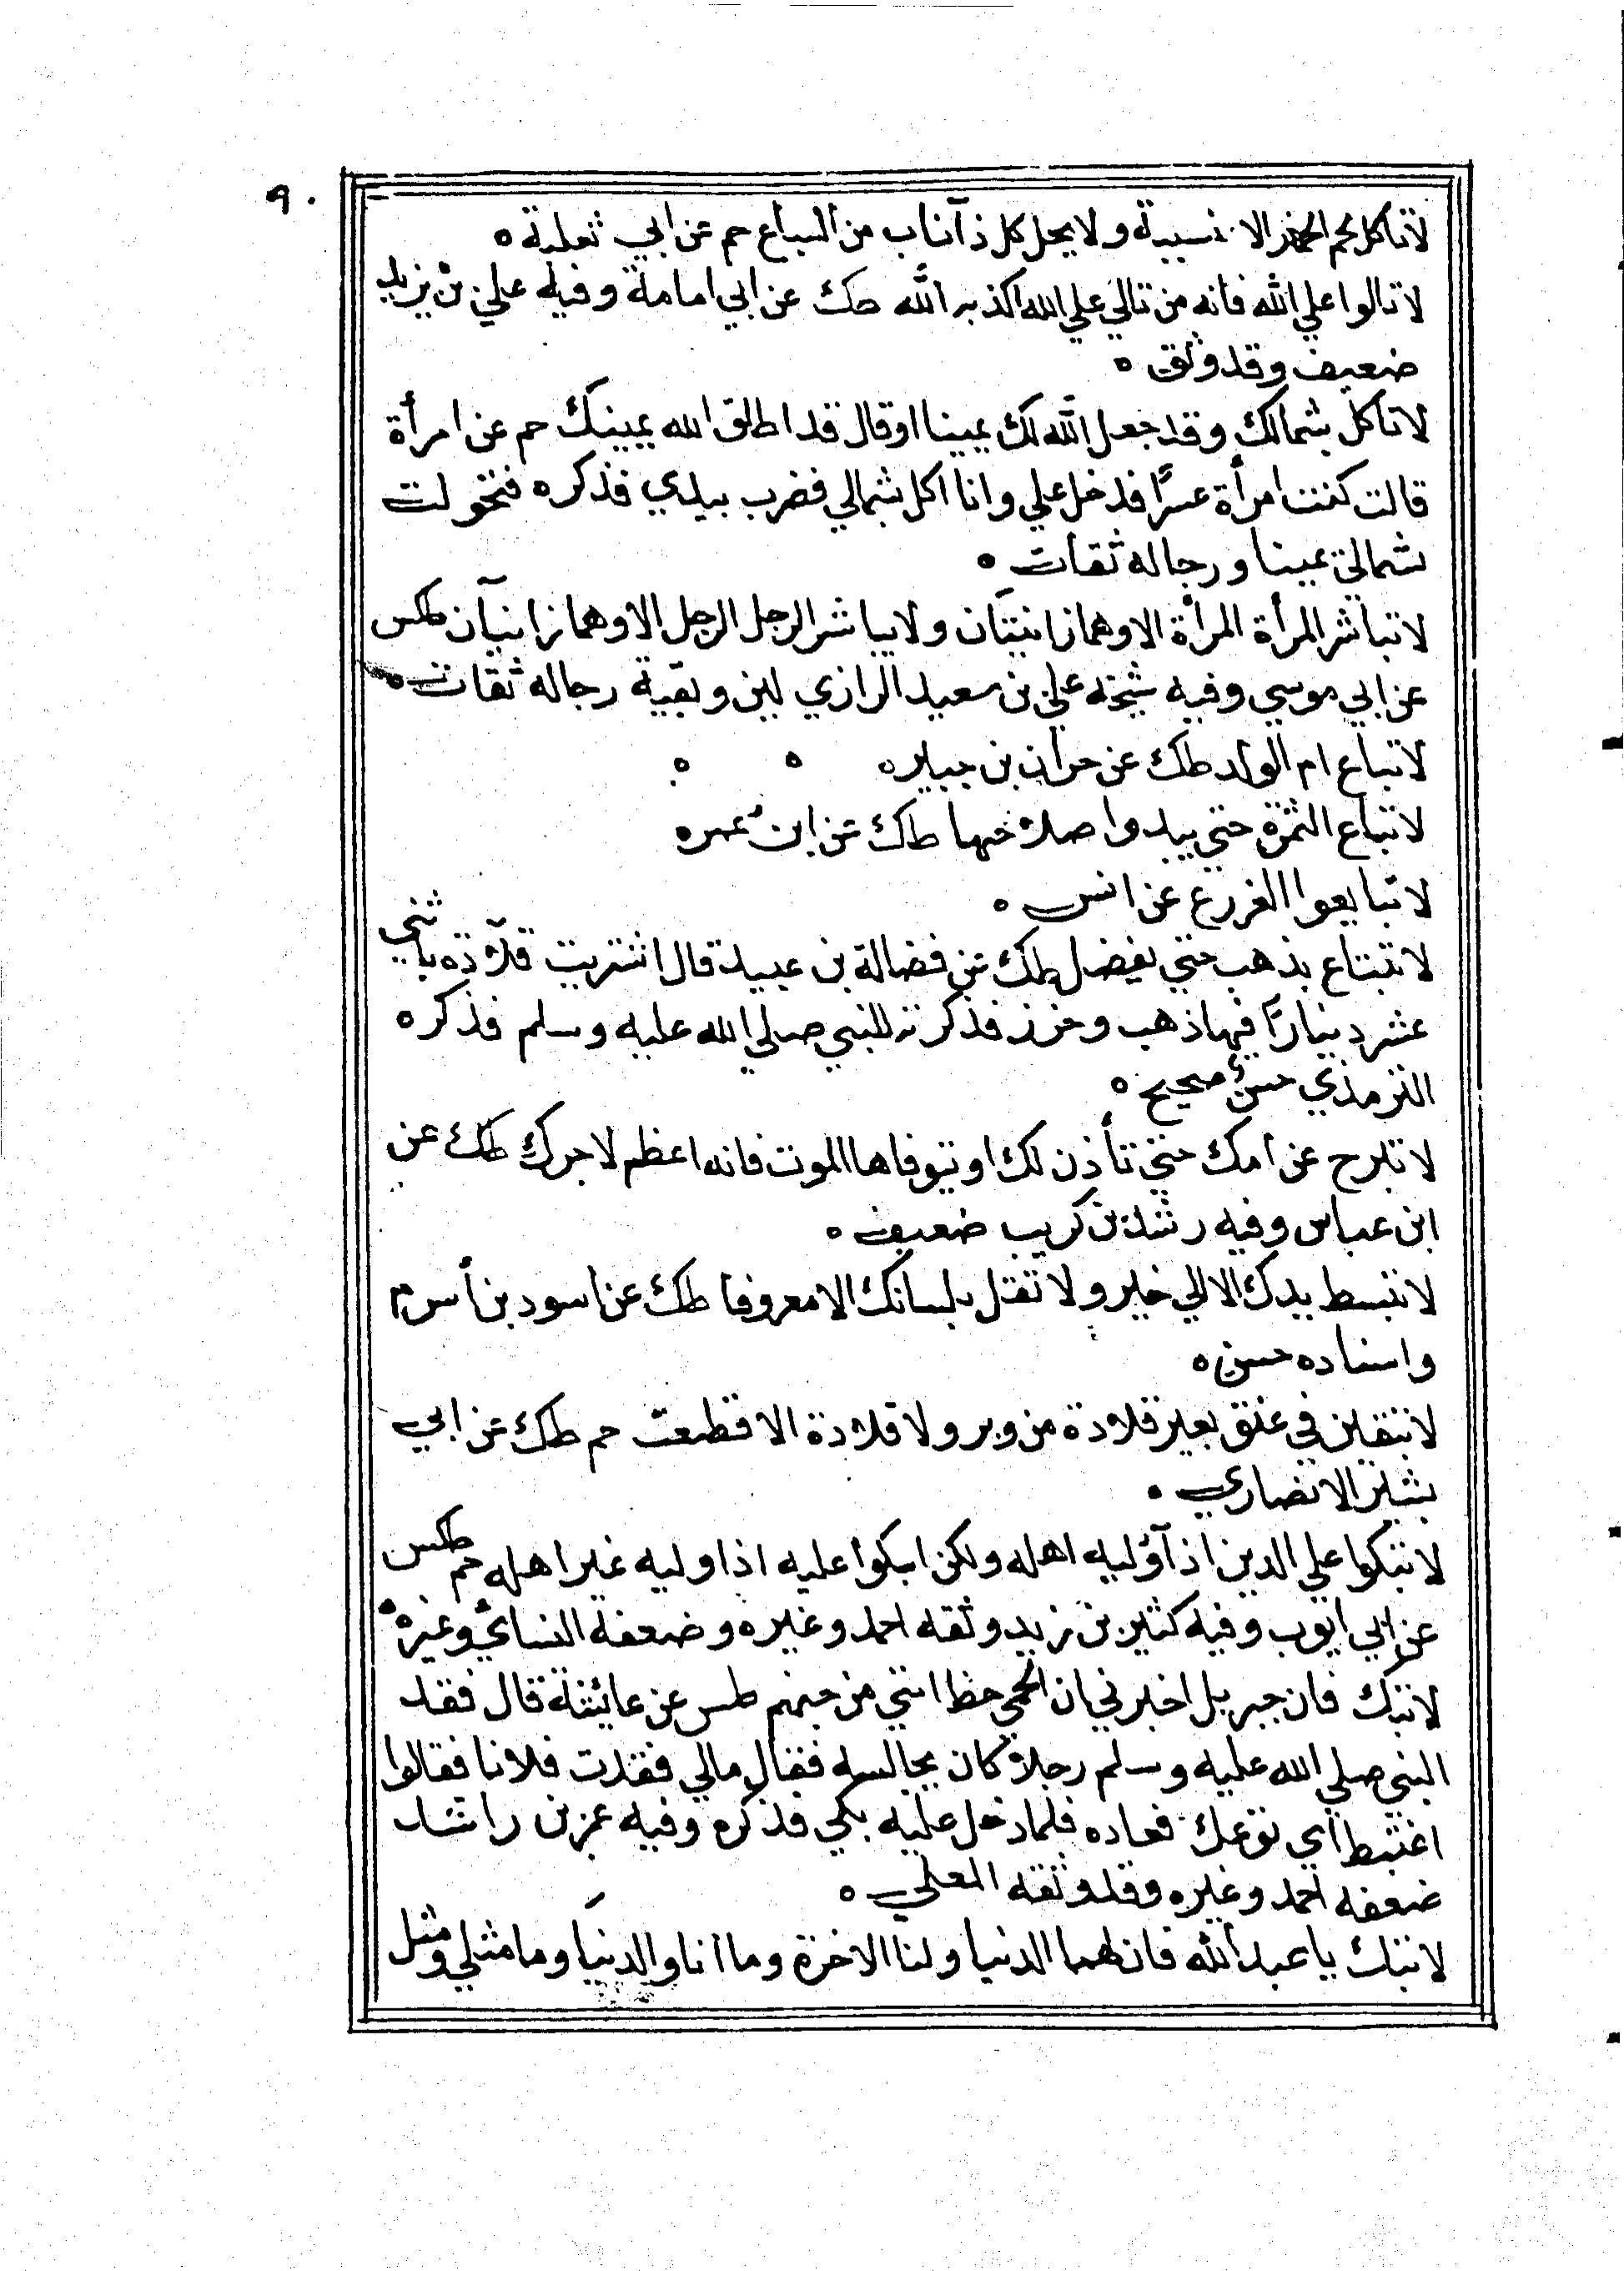 ٩٠
لا تأكل لحم الحمر الانسيية ولا يحل كل ذا ناب من السباع حم عن ابي ثعلبة ه
لا تالوا علي الله فانه من تالي علي الله اكذبه الله طك عن ابي امامة وفيه علي بن يزيد
ضعيف وقد وثق ه
لا تاكل بشمالك وقد جعل الله لك يمينا او قال قد اطلق الله يمينك حم عن امرأة
قالت كنت امرأة عسرًا فدخل علي وانا اكل بشمالي فضرب بيدي فذكره فتحولت
شمالي يمينا ورجاله ثقات ه
لا تباشر المرأة المرأة الا وهما زانيتان ولا يباشر الرجل الرجل الا وهما زانيان طكس
عن ابي موسي وفيه شيخه علي بن سعيد الرازي لين وبقية رجاله ثقات ه
لا تباع ام الولد طك عن خوات بن جبير ه ه ه
لا تباع الثمرة حتي يبدوا صلاحها طك عن ابن عمر ه
لا تبايعوا الغرر ع عن انس ه
لا تبتاع بذهب حتي يفضل طك عن فضالة بن عبيد قال اشتريت قلادة باثني
عشر دينارًا فيها ذهب وخرز فذكرته للنبي صلي الله عليه وسلم فذكره
الترمذي حسن صحيح ه
لا تبرح عن امك حتي تأذن لك او تتوفاها الموت فانه اعظم لاجرك طك عن
ابن عباس وفيه رشد بن كريب ضعيف ه
لا تبسط يدك الا الي خير ولا تقل بلسانك الا معروفا طك عن اسود بن أسرم
واسناده حسن ه
لا تبقين في عنق بعير قلادة من وبر ولا قلادة الا قطعت حم طك عن ابي
بشير الانصاري ه
لا تبكوا علي الدين اذا وليه اهله ولكن ابكوا عليه اذا وليه غير اهله حم طكس
عن ابي ايوب وفيه كثير بن زيد وثقه احمد وغيره وضعفه النسائي وغيره ه
لا تبك فان جبريل اخبرني ان الحمي حظ امتي من جهنم طس عن عائشة قال فقد
النبي صلي الله عليه وسلم رجلا كان يجالسه فقال مالي فقدت فلانا فقالوا
اغتبط اي توعك فعاده فلما دخل عليه بكي فذكره وفيه عمر بن راشد
ضعفه احمد وغيره وقد وثقه العجلي ه
لا تبك يا عبد الله فان لهما الدنيا ولنا الاخرة وما انا والدنيا وما مثلي ومثل